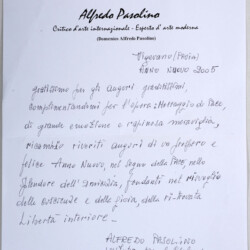 Alfredo Pasolino
Critico d'arte internazionale - Esperto d'arte moderna
(Domenico Alfredo Pasolino)
Vigevano (Pavia)
Anno Nuovo 2005
gratissimo per gli auguri graditissimi,
complimentandomi per l'opera: Messaggio di Pace,
di grande emozione e meraviglia,
ricambio riveriti auguri di un prospero e
felice Anno Nuovo, nel segno della Pace, nello
splendore dell'amicizia, fondanti nel risveglio
della e della gioia, della
libertà interiore.
ALFREDO PASOLINO